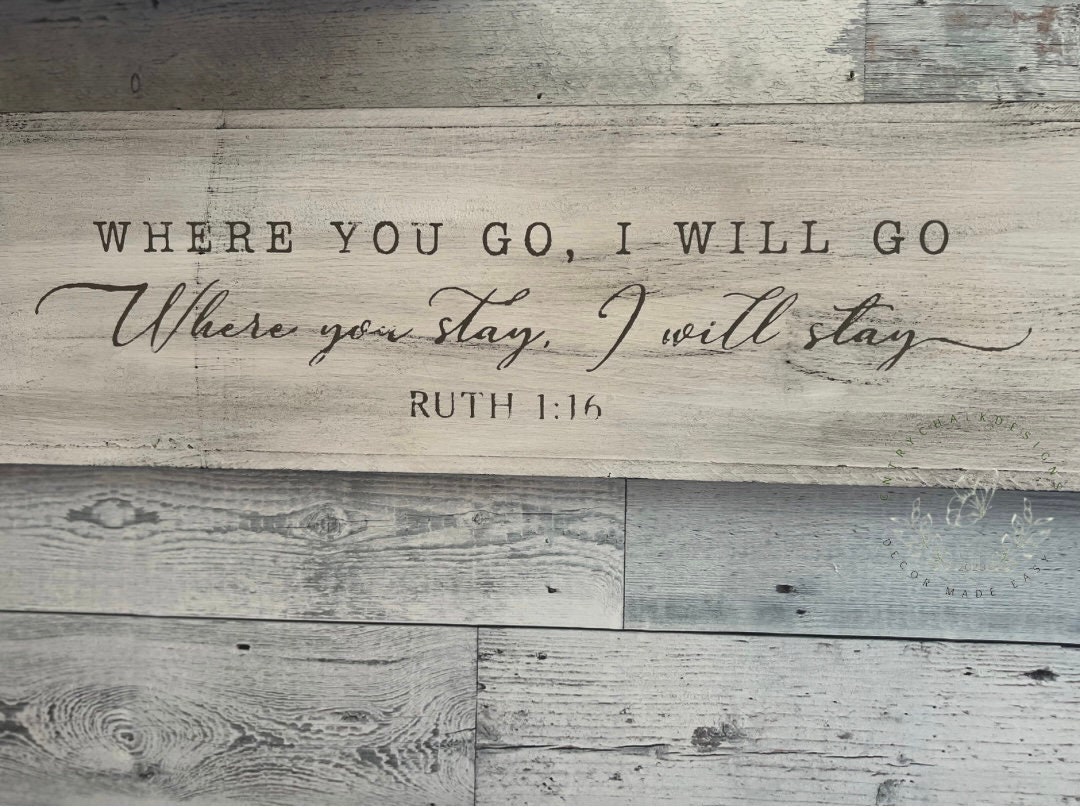 WHERE YOU GO, I WILL GO
Where you stay, I will stay
RUTH 1:16
NTRYCHALKDESIGNS
2023
DECOR MADE EASY